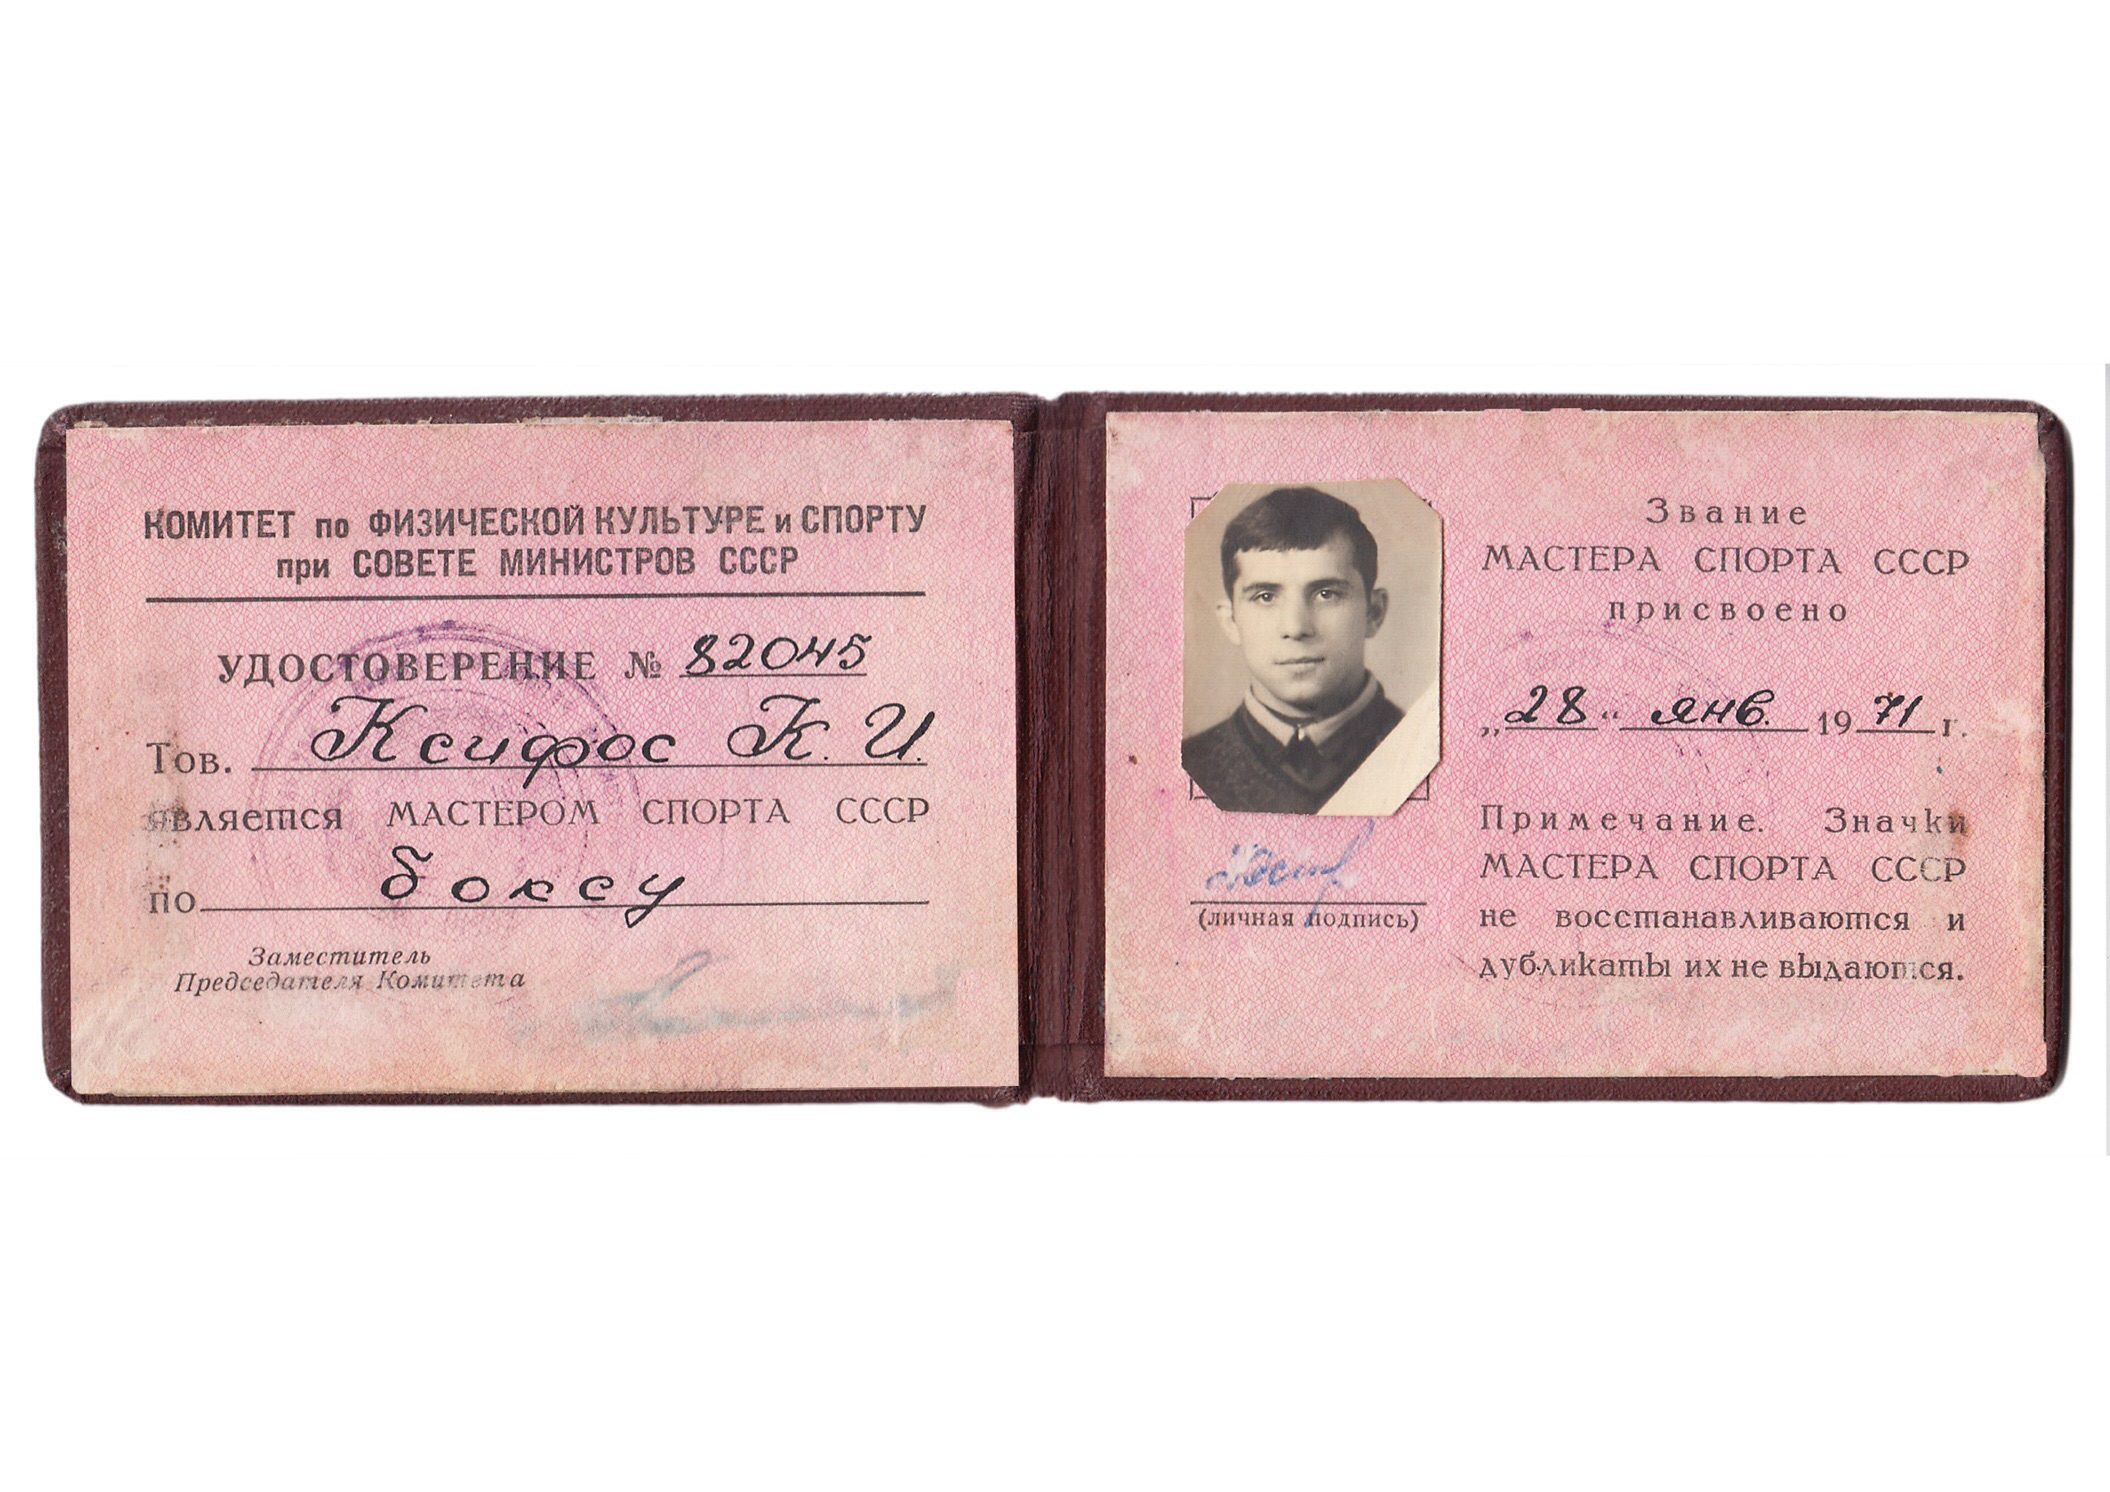 КОМИТЕТ по ФИЗИЧЕСКОЙ КУЛЬТУРЕ и СПОРТУ
при СОВЕТЕ МИНИСТРОВ СССР
УДОСТОВЕРЕНИЕ № 82045
Тов. Ксифос К. И.
является МАСТЕРОМ СПОРТА СССР
по боксу
Заместитель
Председателя Комитета
Звание
МАСТЕРА СПОРТА СССР
присвоено
„28“ янв. 1971 г.
(личная подпись)
Примечание. Значки
МАСТЕРА СПОРТА СССР
не восстанавливаются и
дубликаты их не выдаются.